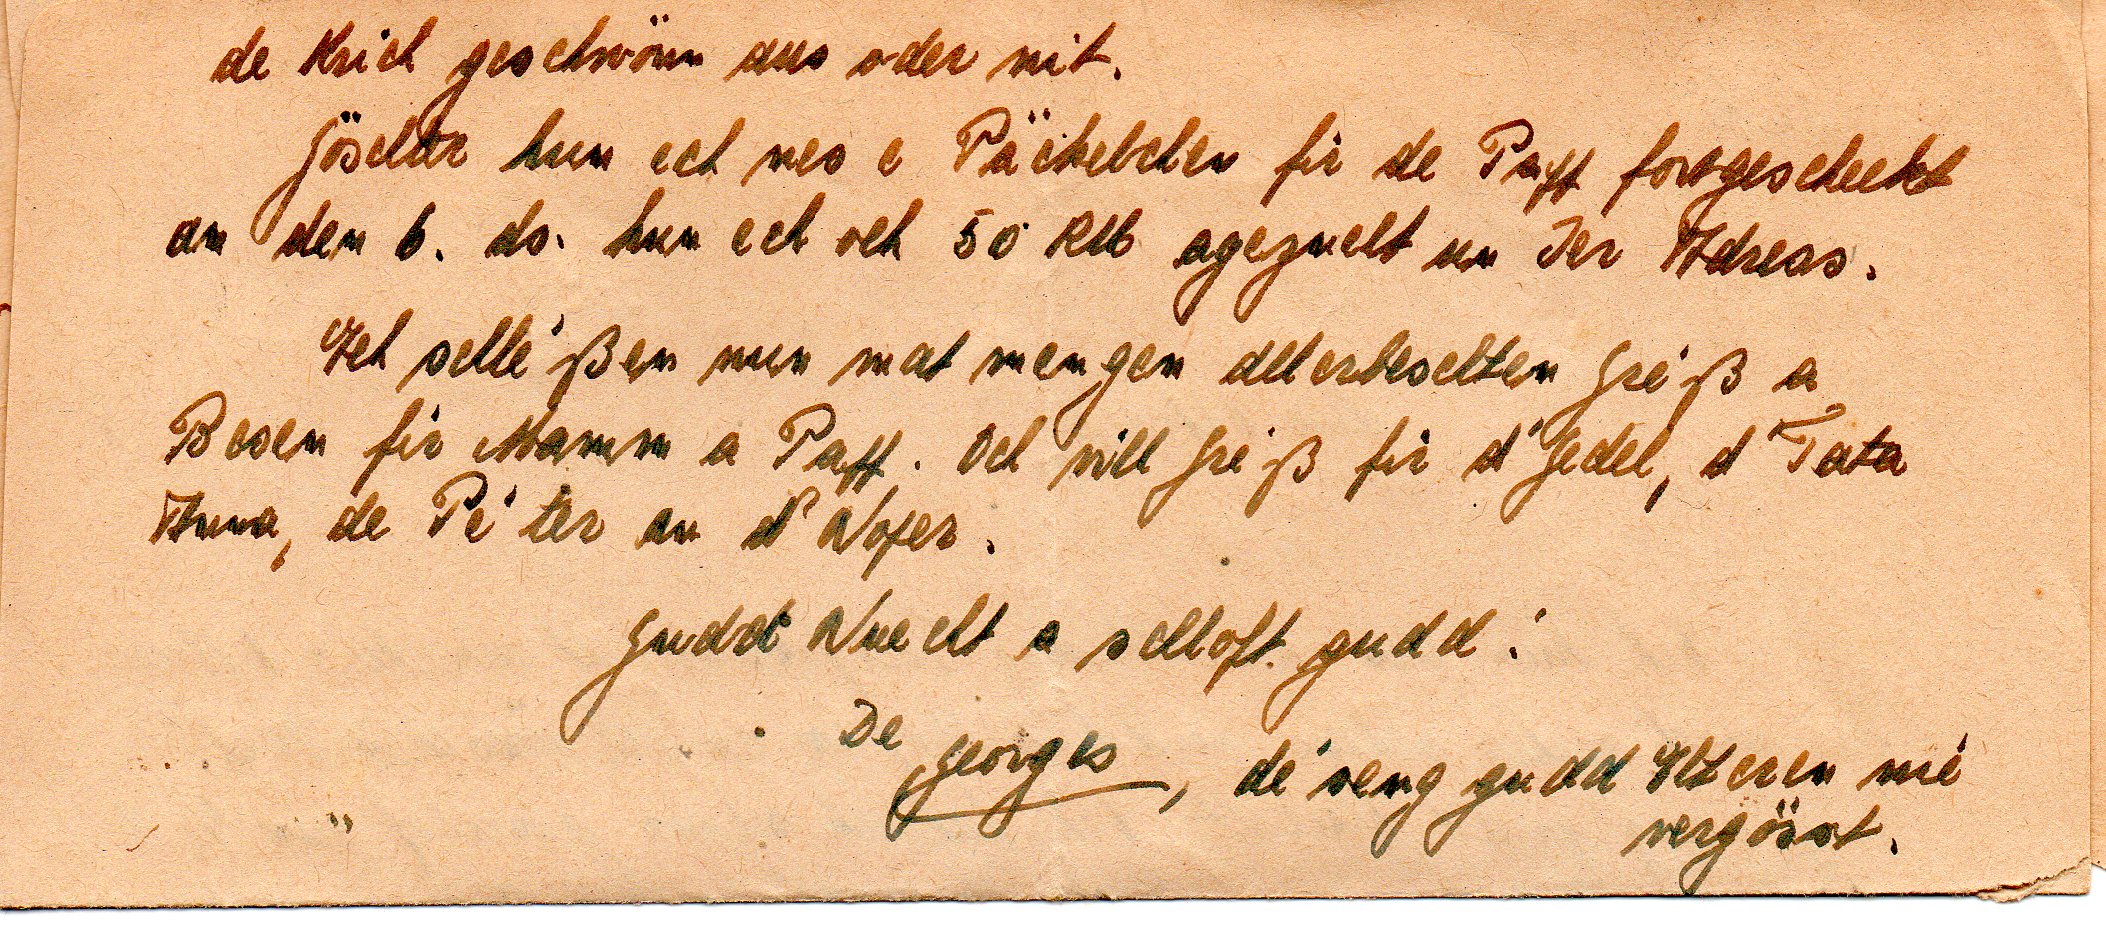 de Krich geschwönn aus oder nit.
Göschter hun ech nes e Päckelchen fir de Papp fortgescheckt
an den 6. ds. hun ech och 50 RM agezuelt un Ier Adress.
Ech schléßen nun mat mengen allerbeschten Gréß a
Bosen fir Mamm a Papp. Och vill Gréß fir d'Jedel, d'Tata
Anna, de Péter an d'Noper.
Gudd Nuecht a schloft gudd!
De Georges, dé seng gudd Elteren nie
vergösst.